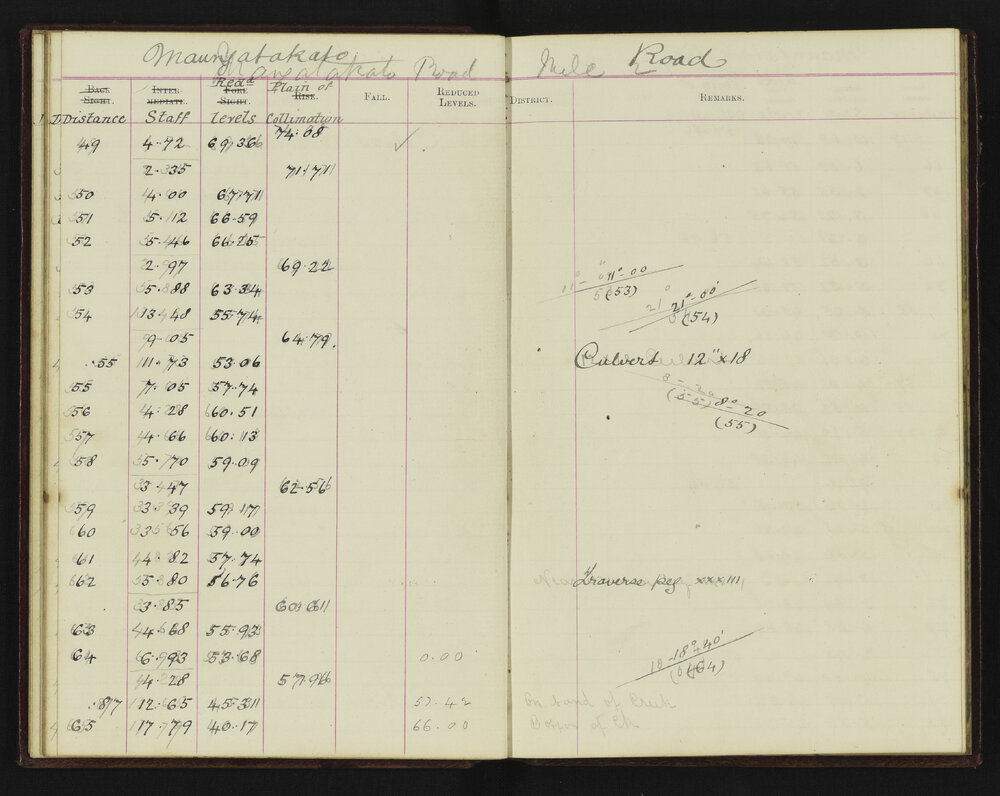 Maungatakato Road Mile Road
Maungatakato
Back Sight. Intermediate. Fore Sight. Rise. Fall. Reduced Levels. District. Remarks.
Distance Staff Read Levels Plain of Collimation
74.08
49 4.72 69.36
2.35 71.71
50 4.00 67.71
51 5.12 66.59
52 5.46 66.25
2.97 69.22
11°-00
53 5.88 63.34 (53)
21°-00'
54 13.48 55.74 (54)
9.05 64.79
.55 11.73 53.06 Culvert 12" x 18
55 7.05 57.74
8°-20
56 4.28 60.51 (55)
57 4.66 60.13
58 5.70 59.09
3.47 62.56
59 3.39 59.17
60 3.56 59.00
61 4.82 57.74
62 5.80 56.76 Traverse peg xxxiii
3.85 60.61
63 4.68 55.93
18°-40'
64 6.93 53.68 0.00 (64)
4.28 57.96
.87 12.65 45.31 57.42 On band of Creek
65 17.79 40.17 66.00 of Ck